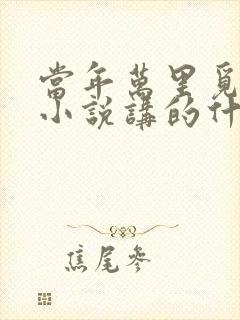 當年萬里覓
小説講的什
焦尾參